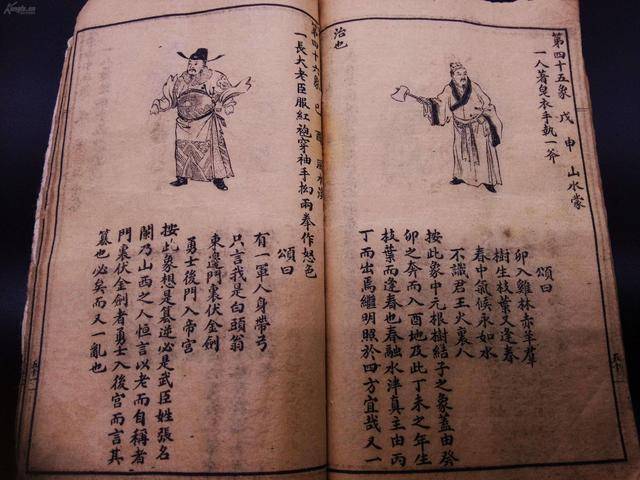 第四十五象 戊申 山水蒙
一人著皂衣手執一斧
頌曰
卯入雞林亦羊羣
樹生枝葉又逢春
春中氣候永如水
不識君王火裏人
按此象中元根樹結子之象蓋由癸
卯之奔而入西地及此丁未之年生
枝葉而逢春也春融水津真主由丙
丁而出焉繼明照於四方宜哉又一
治也
第四十六象 己酉 風水渙
一長大老臣服紅袍穿袖手拘兩拳作怒色
頌曰
有一軍人身帶弓
只言我是白頭翁
東邊門裏伏金劍
勇士後門入帝宮
按此象想是篡逆必是武臣姓張名
闌乃山西之人恒言以老而自稱者
門裏伏金劍者勇士入後宮而言其
篡也必矣而又一亂也
Kongfz.cn